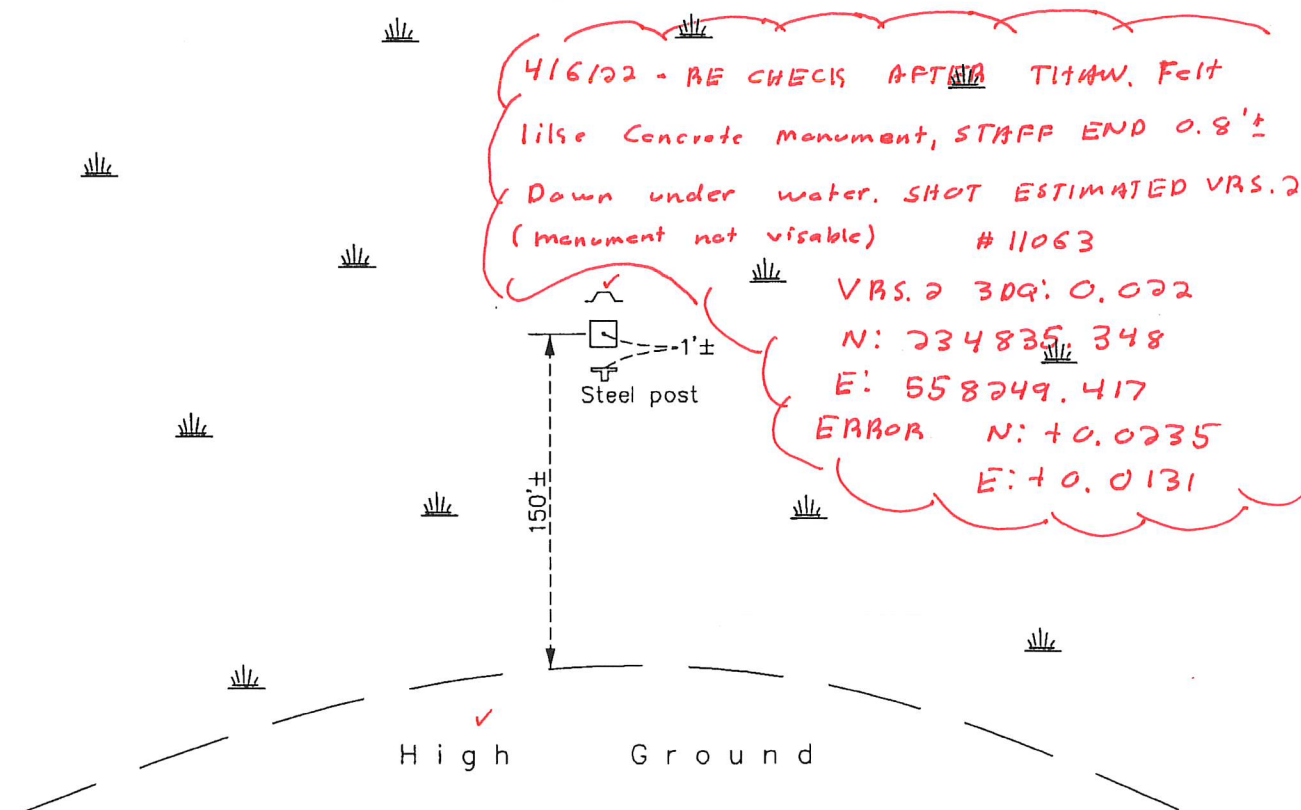 4/6/22 - RE CHECK AFTER THAW. Felt
like Concrete monument, STAFF END 0.8'±
Down under water. SHOT ESTIMATED VRS.2
(monument not visable) # 11063
VRS.2 3DQ: 0.022
N: 234835.348
E: 558249.417
ERROR N: +0.0235
E: +0.0131
1'±
Steel post
150'±
High Ground